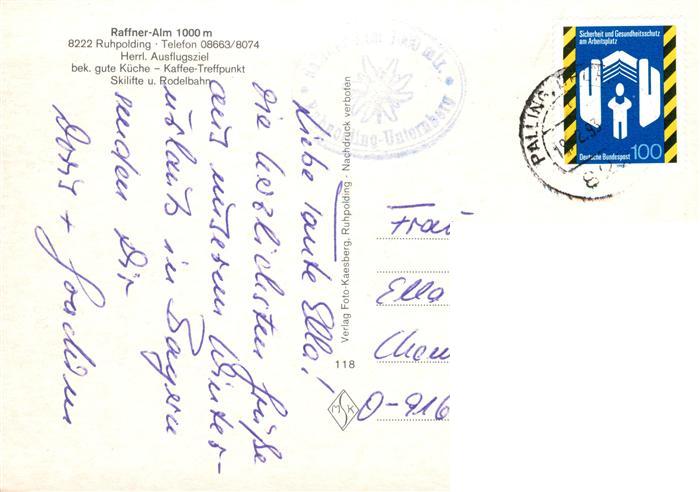 Raffner-Alm 1000 m
8222 Ruhpolding · Telefon 08663/8074
Herrl. Ausflugsziel
bek. gute Küche – Kaffee-Treffpunkt
Skilifte u. Rodelbahn
Liebe Tante Ella!
die herzlichsten Grüße
aus unserem Winter-
urlaub in Bayern
senden Dir
Doris + Joachim
Ruhpolding-Unternberg
Verlag Foto-Kaesberg, Ruhpolding · Nachdruck verboten
118
M S K
Sicherheit und Gesundheitsschutz
am Arbeitsplatz
Deutsche Bundespost 100
PALLING
Frau
Ella
D-916